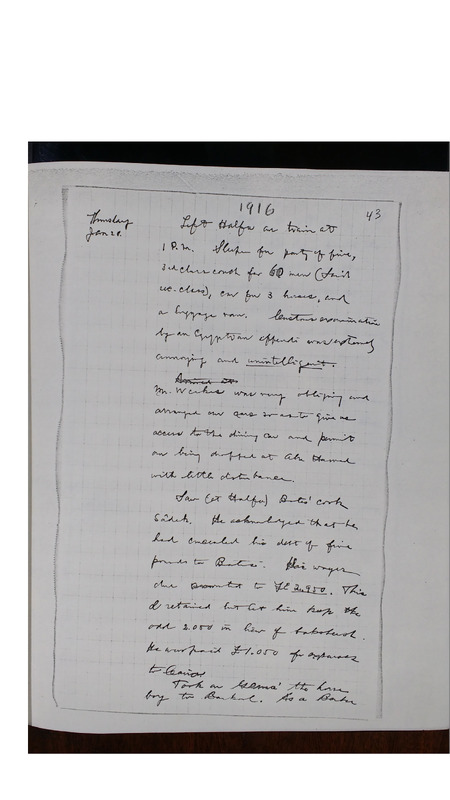 1916
43
Thursday
Jan 20.
Left Halfa on train at
1 P.M. Sleeper for party of five,
3rd class coach for 60 men (Said
class), car for 3 horses, and
a luggage van. Customs examination
by an Egyptian effendi was extremely
annoying and unintelligent.
Arrived at
Mr. was very obliging and
arranged our cars so as to give us
access to the dining car and permit
our being dropped at Abu Hamed
with little disturbance.
Saw (at Halfa) Bates' cook
Sadek. He acknowledged that he
had cancelled his debt of five
pounds to Bates. His wages
due amounted to This
I retained but let him keep the
odd 2.050 in lieu of baksheesh.
He was paid £1.050 for expenses
to Cairo
Took on the horse
boy to Barkal. As a Baker